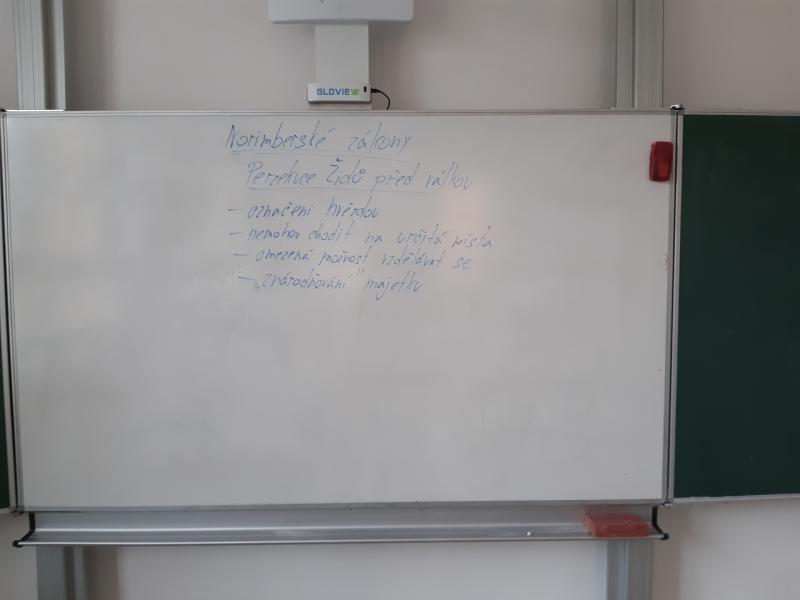 GLOVIEW
Norimberské zákony
Perzekuce Židů před válkou
- označení hvězdou
- nemohou chodit na určitá místa
- omezená možnost vzdělávat se
- „znárodňování" majetku